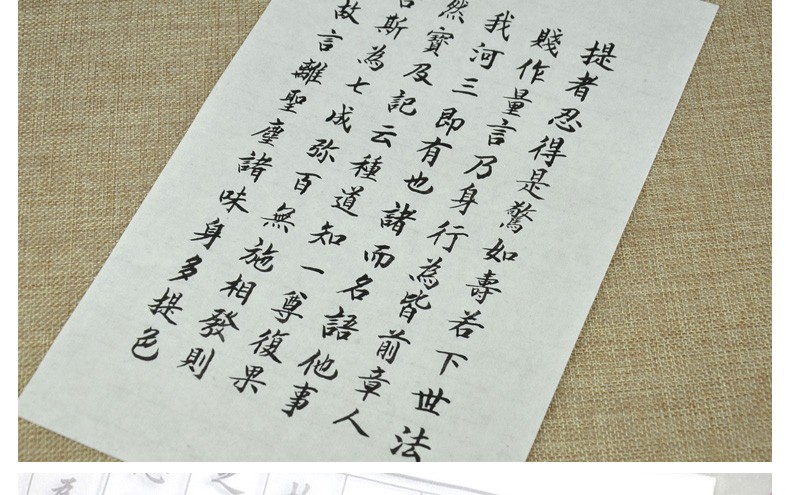 提者忍得是驚如壽若下世法
賤作量言乃身行為皆前章人
我河三即有也諸而名語他事
然寶及記云種道知一尊復果
斯為七成弥百無施相發則
故言離聖塵諸味身多提色